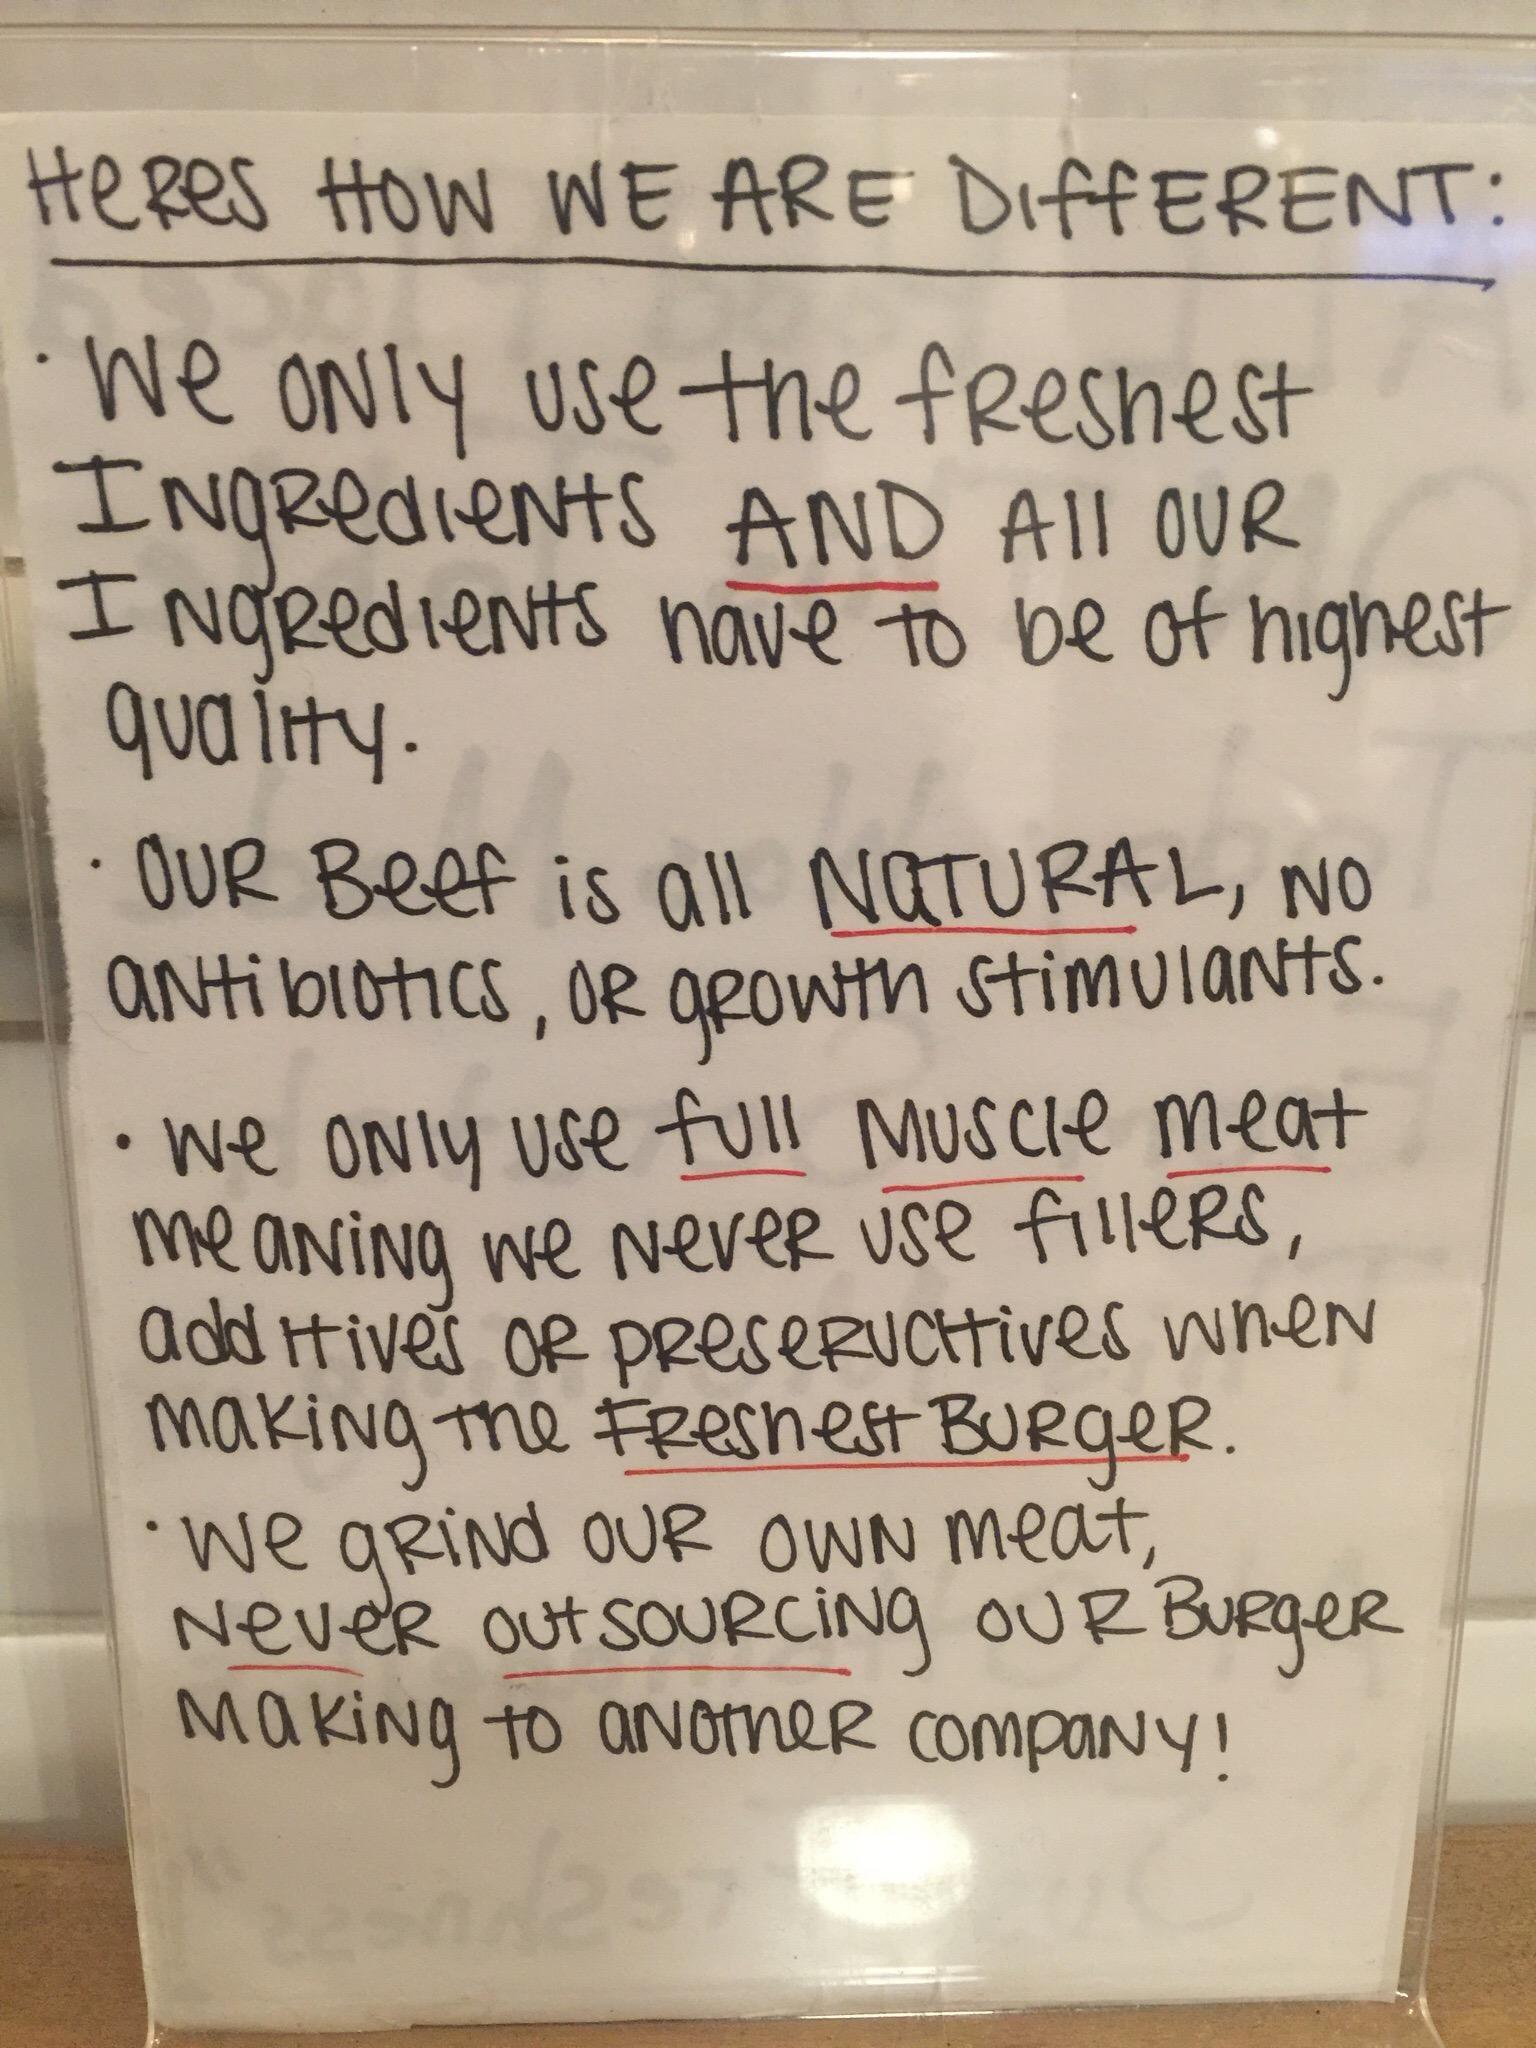 HERES HOW WE ARE DIFFERENT:
· We only use the freshest
Ingredients AND All OUR
Ingredients have to be of highest
quality.
· OUR Beef is all NATURAL, NO
antibiotics, OR growth stimulants.
· We only use full Muscle meat
meaning we never use fillers,
additives OR preservatives when
making the Freshest Burger.
· We grind our own meat,
Never outsourcing our Burger
Making to another company!